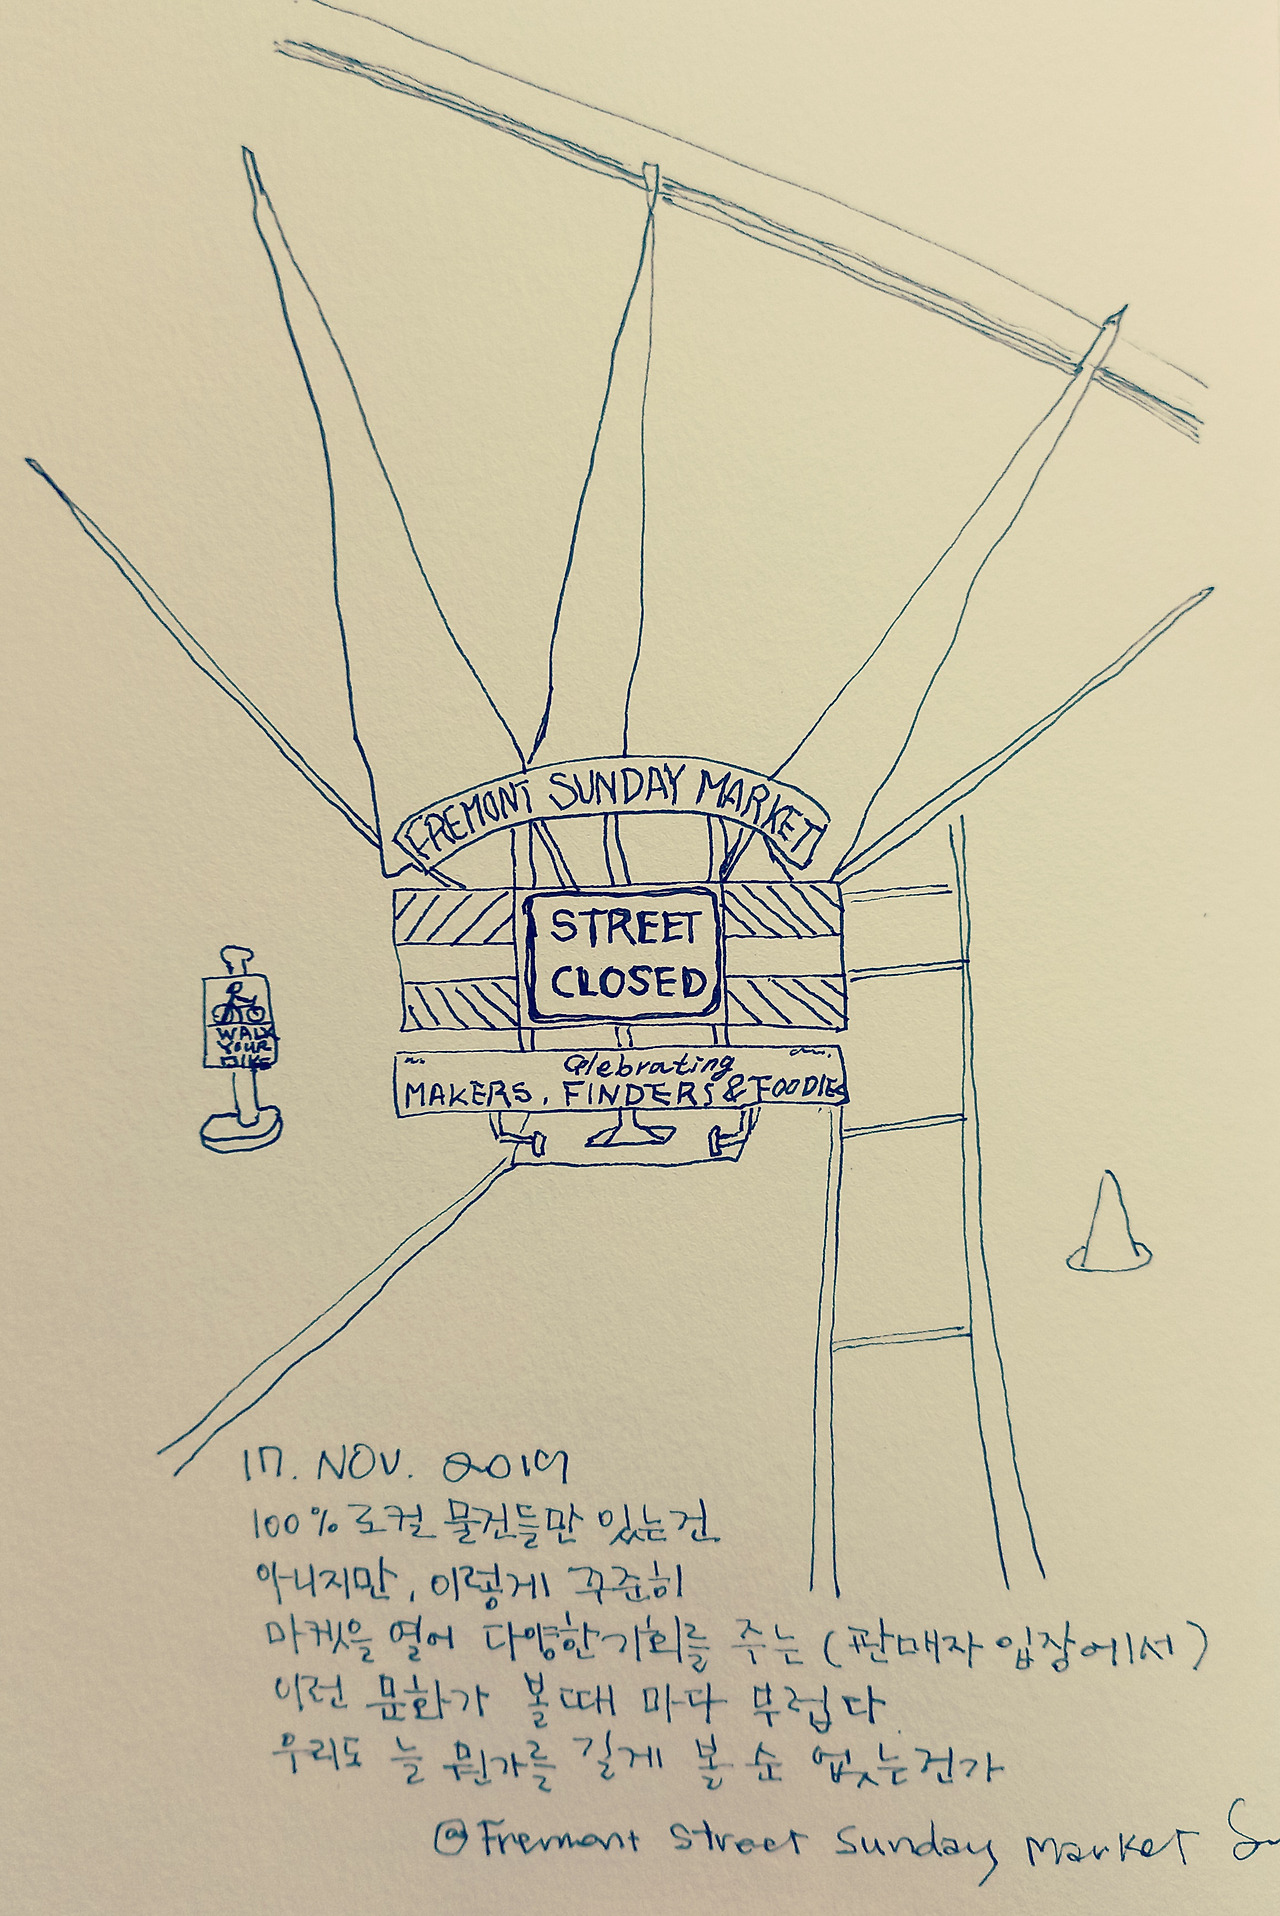 FREMONT SUNDAY MARKET
STREET
CLOSED
WALK
YOUR
BIKE
Celebrating
MAKERS, FINDERS & FOODIES
17. NOV. 2019
100%로컬 물건들만 있는건
아니지만, 이렇게 꾸준히
마켓을 열어 다양한 기회를 주는 (판매자 입장에서)
이런 문화가 볼때 마다 부럽다
우리도 늘 뭔가를 길게 볼 순 없는건가
@Fremont Street Sunday Market